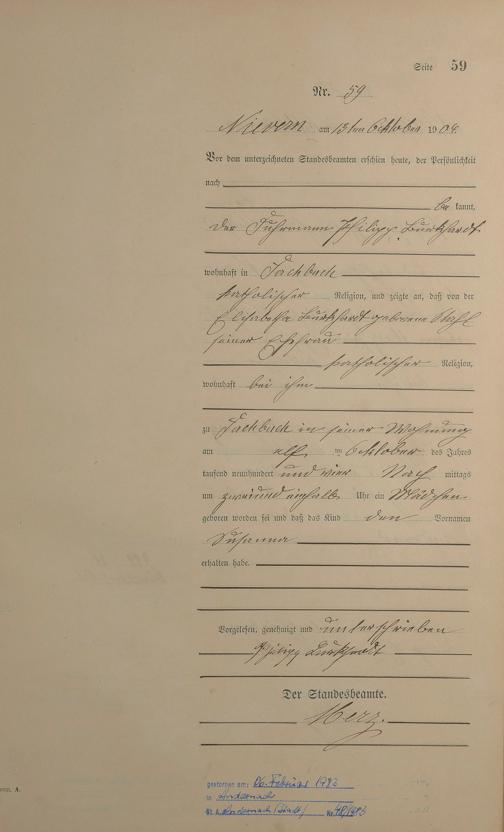 Seite 59
Nr. 59
Nievern am 13ten Oktober 1904.
Vor dem unterzeichneten Standesbeamten erschien heute, der Persönlichkeit
nach
be kannt,
der Fuhrmann Philipp Burkhardt
wohnhaft in Fachbach
katholischer Religion, und zeigte an, daß von der
Elisabetha Burkhardt geborene Stahl
seiner Ehefrau
katholischer Religion,
wohnhaft bei ihm
zu Fachbach in seiner Wohnung
am elf ten Oktober des Jahres
tausend neunhundert und vier Nach mittags
um zweiundeinhalb Uhr ein Mädchen
geboren worden sei und daß das Kind den Vornamen
Susanna
erhalten habe.
Vorgelesen, genehmigt und unterschrieben
Philipp Burkhardt
Der Standesbeamte.
Merz.
gestorben am: Februar
in Andernach
Andernach (Stadt) Nr.
A.